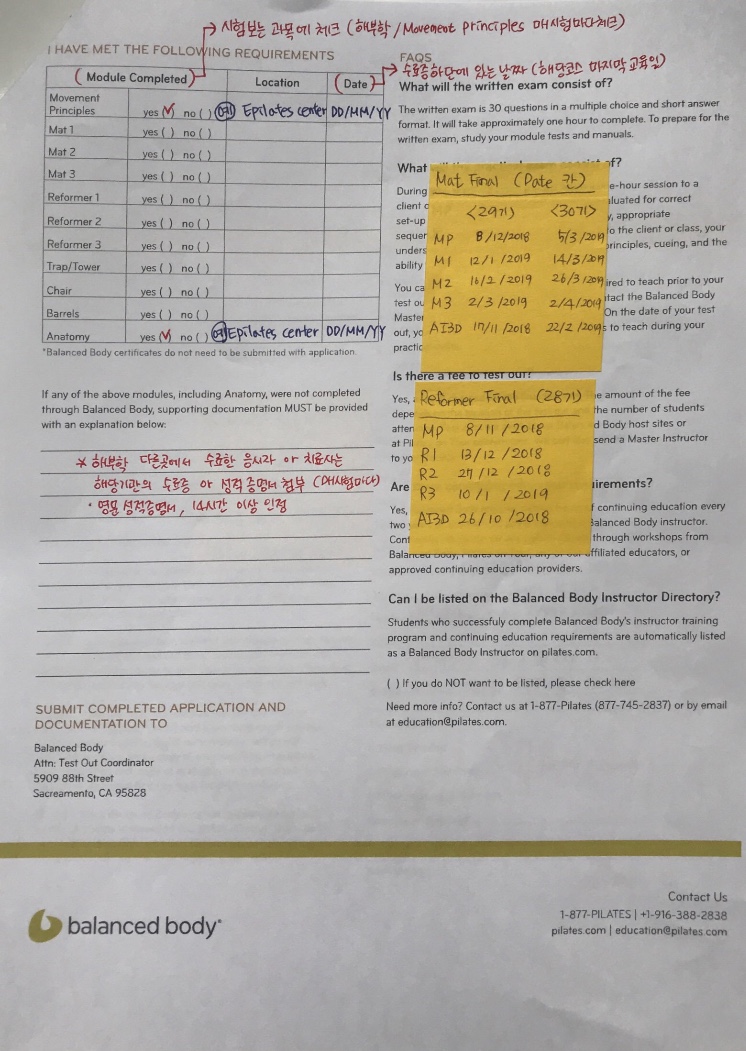 시험보는 과목에 체크 (해부학 / Movement Principles 매시험마다체크)
I HAVE MET THE FOLLOWING REQUIREMENTS
(Module Completed)
Location
(Date)
Movement Principles yes (✓) no ( ) 예) Epilates center DD/MM/YY
Mat 1 yes ( ) no ( )
Mat 2 yes ( ) no ( )
Mat 3 yes ( ) no ( )
Reformer 1 yes ( ) no ( )
Reformer 2 yes ( ) no ( )
Reformer 3 yes ( ) no ( )
Trap/Tower yes ( ) no ( )
Chair yes ( ) no ( )
Barrels yes ( ) no ( )
Anatomy yes (✓) no ( ) 예) Epilates center DD/MM/YY
*Balanced Body certificates do not need to be submitted with application.
If any of the above modules, including Anatomy, were not completed
through Balanced Body, supporting documentation MUST be provided
with an explanation below:
* 해부학 다른곳에서 수료한 응시자 or 치료사는
해당기관의 수료증 or 성적증명서 첨부 (매시험마다)
· 영문 성적증명서, 14시간 이상 인정
SUBMIT COMPLETED APPLICATION AND
DOCUMENTATION TO
Balanced Body
Attn: Test Out Coordinator
5909 88th Street
Sacreamento, CA 95828
FAQS
수료증하단에 있는 날짜 (해당코스 마지막 교육일)
What will the written exam consist of?
The written exam is 30 questions in a multiple choice and short answer
format. It will take approximately one hour to complete. To prepare for the
written exam, study your module tests and manuals.
What
During
client
set-up
sequen
unders
ability
You ca
test ou
Master
out, yo
practic
Mat Final (Date 칸)
<29기> <30기>
MP 8/12/2018 5/3/2019
M1 12/1/2019 14/3/2019
M2 16/2/2019 26/3/2019
M3 2/3/2019 2/4/2019
AI3D 17/11/2018 22/2/2019
of?
e-hour session to a
luated for correct
, appropriate
o the client or class, your
rinciples, cueing, and the
ired to teach prior to your
tact the Balanced Body
On the date of your test
s to teach during your
Is there a fee to test out?
Yes,
depe
atten
at Pil
to yo
Reformer Final (28기)
MP 8/11/2018
R1 13/12/2018
R2 27/12/2018
R3 10/1/2019
AI3D 26/10/2018
e amount of the fee
he number of students
d Body host sites or
send a Master Instructor
Are
irements?
Yes,
two
Cont
f continuing education every
Balanced Body instructor.
through workshops from
affiliated educators, or
approved continuing education providers.
Can I be listed on the Balanced Body Instructor Directory?
Students who successfuly complete Balanced Body's instructor training
program and continuing education requirements are automatically listed
as a Balanced Body Instructor on pilates.com.
( ) If you do NOT want to be listed, please check here
Need more info? Contact us at 1-877-Pilates (877-745-2837) or by email
at education@pilates.com.
balanced body®
Contact Us
1-877-PILATES | +1-916-388-2838
pilates.com | education@pilates.com